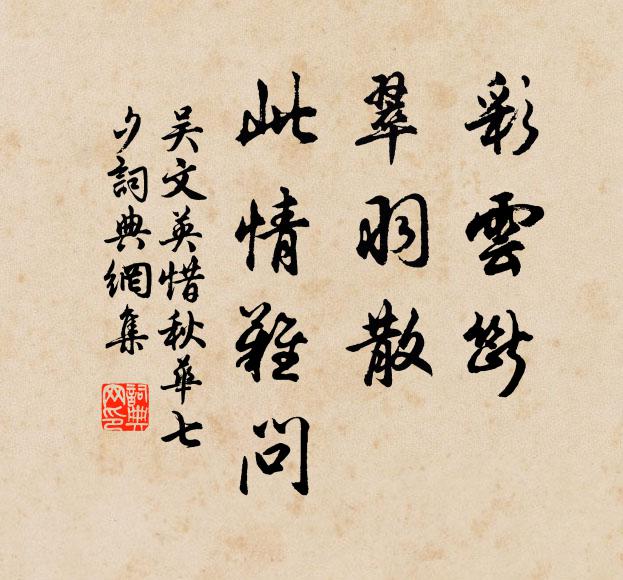 彩雲斷
翠羽散
此情難問
吳文英惜秋華七
夕詞典網集
詞典
网印